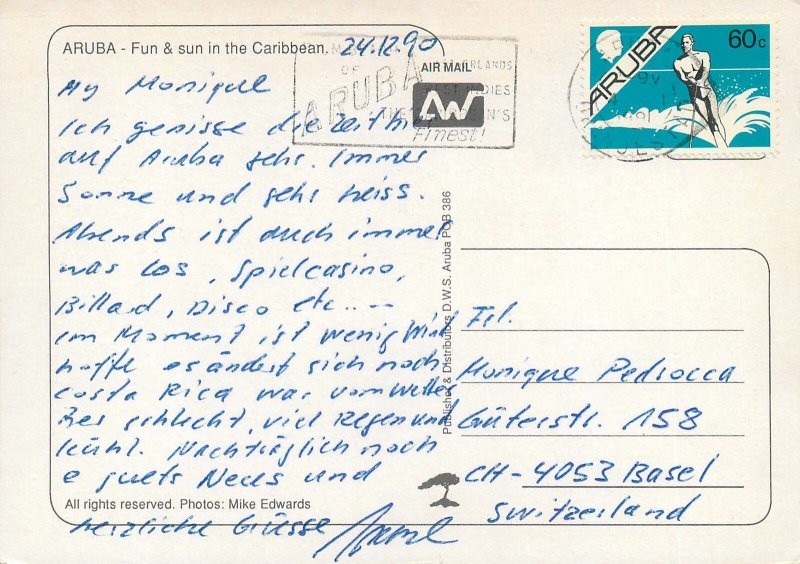 ARUBA - Fun & sun in the Caribbean.
24.12.90
Hy Monique
Ich geniesse die Zeit hier
auf Aruba sehr. Immer
Sonne und sehr heiss.
Abends ist auch immer
was los, Spielcasino,
Billard, Disco etc....
im Moment ist wenig Wind
hoffe es ändert sich noch
Costa Rica war vom Wetter
her schlecht, viel Regen und
kühl. Nachträglich noch
e guets Neus und
All rights reserved. Photos: Mike Edwards
herzliche Grüsse
AIR MAIL
ARUBA
AW
Finest!
Publisher & Distributors D.W.S. Aruba POB 386
ARUBA
60c
Frl.
Monique Pedrocca
Güterstr. 158
CH-4053 Basel
Switzerland